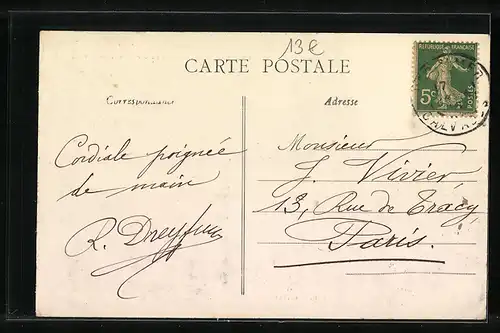 13e
CARTE POSTALE
Correspondance
Adresse
REPUBLIQUE FRANÇAISE
5c
POSTES
Cordiale poignée
de main
R. Dreyfus
Monsieur
J. Vivier
13, Rue de Tracy
Paris.